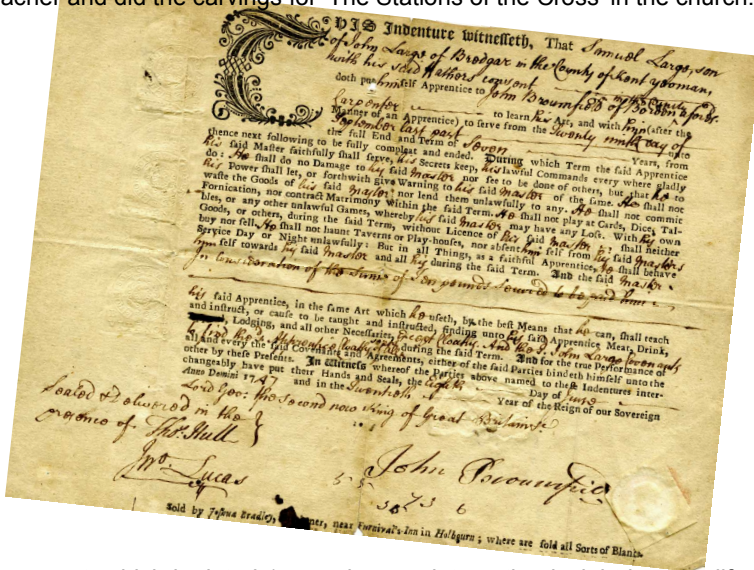 acher and did the carvings for 'The Stations of the Cross' in the church.
THIS Indenture witnesseth, That Samuel Large, son
of John Large of Bredgar in the County of Kent yeoman,
with his said Fathers consent
doth put himself Apprentice to John Brounfield of Borden
Carpenter to learn his Art, and with him (after the
Manner of an Apprentice) to serve from the Twenty ninth day of
September last past unto
the full End and Term of Seven Years, from
thence next following to be fully compleat and ended. During which Term the said Apprentice
his said Master faithfully shall serve, his Secrets keep, his lawful Commands every where gladly
do: He shall do no Damage to his said Master nor see to be done of others, but that he to
his Power shall let, or forthwith give Warning to his said Master of the same. He shall not
waste the Goods of his said Master nor lend them unlawfully to any. He shall not commit
Fornication, nor contract Matrimony within the said Term. He shall not play at Cards, Dice, Tal-
bles, or any other unlawful Games, whereby his said Master may have any Loss. With his own
Goods, or others, during the said Term, without Licence of his said Master shall neither
buy nor sell. He shall not haunt Taverns or Play-houses, nor absent him self from his said Masters
Service Day or Night unlawfully: But in all Things, as a faithful Apprentice, he shall behave
him self towards his said Master and all his during the said Term. And the said Master
In Consideration of the Sume of Ten pounds
his said Apprentice, in the same Art which he useth, by the best Means that he can, shall teach
and instruct, or cause to be taught and instructed, finding unto his said Apprentice Meat, Drink,
Lodging, and all other Necessaries, Except Cloaths. And the sd. John Large Covenants
to find the sd. Apprentice during the said Term. And for the true Performance of
all and every the said Covenants and Agreements, either of the said Parties bindeth himself unto the
other by these Presents. In Witness whereof the Parties above named to these Indentures inter-
changeably have put their Hands and Seals, the Eighth Day of June
Anno Domini 1747 and in the Twentieth Year of the Reign of our Sovereign
Lord Geo: the Second now King of Great Britain &c
Sealed & delivered in the
presence of Thos. Hull
Jno. Lucas
John Brounfield
Sold by Joshua Bradley, near Furnival's Inn in Holbourn; where are sold all Sorts of Blanks.